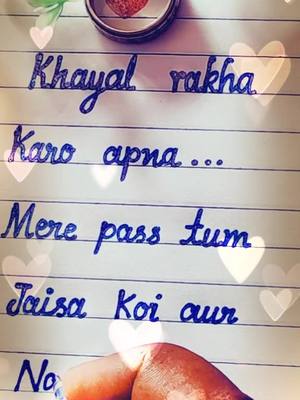 Khayal rakha
Karo apna...
Mere pass tum
Jaisa Koi aur
No